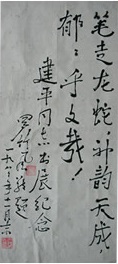 笔走龙蛇，神韵天成，
郁郁乎文哉！
建平同志书展纪念
一九八六年十一月六